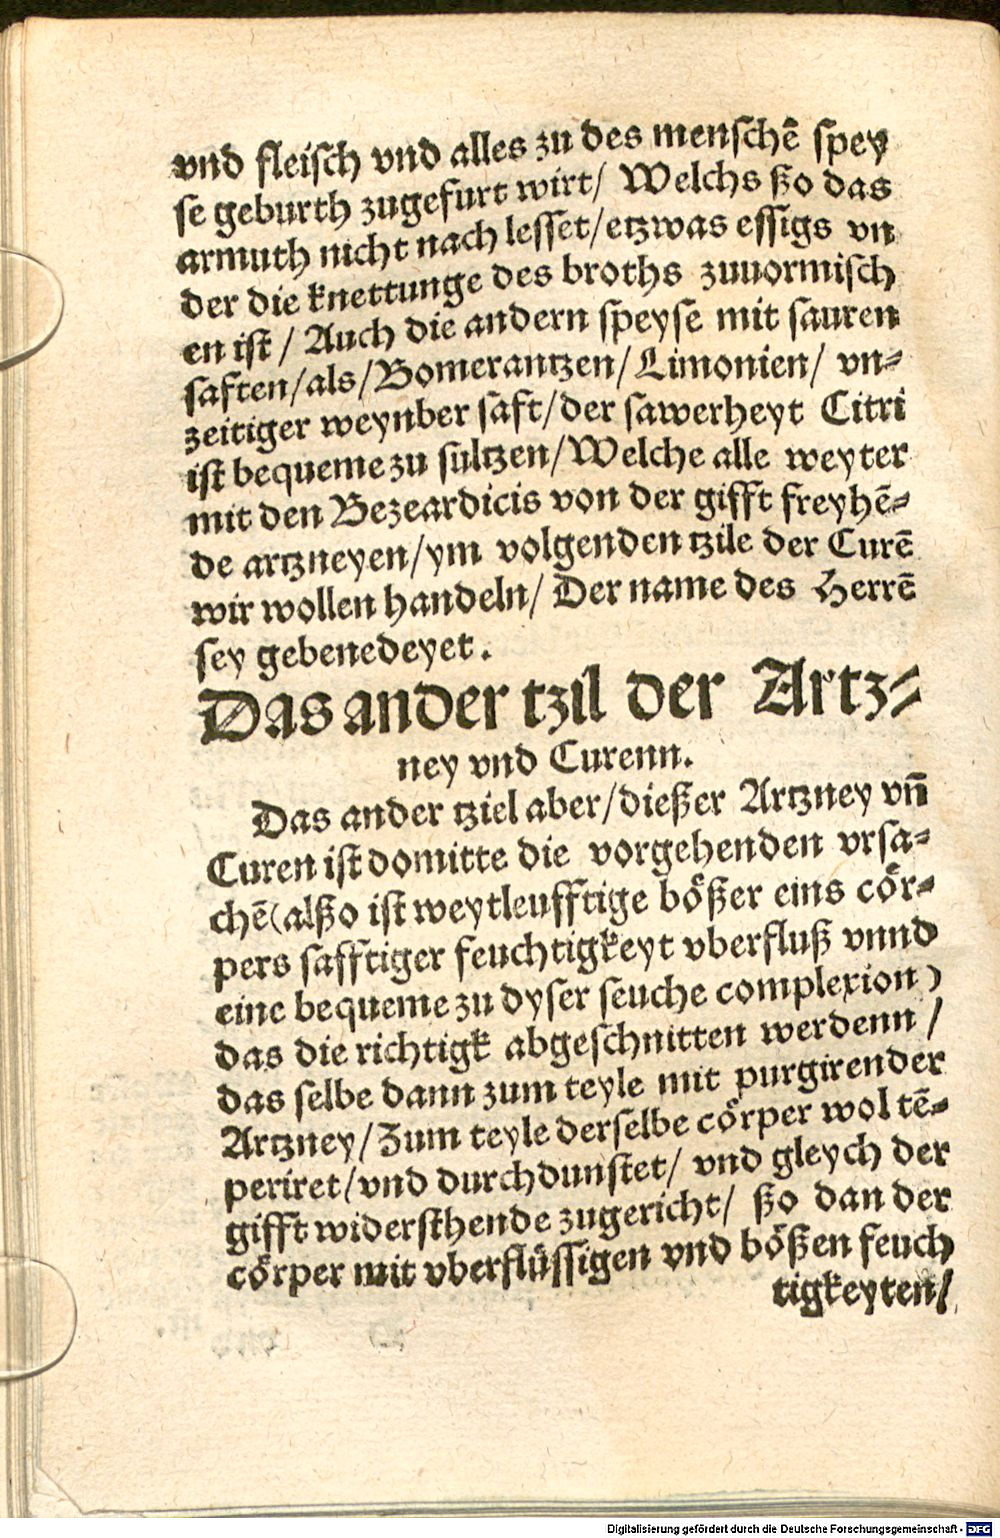 vnd fleisch vnd alles zu des menschē spey
se geburth zugefurt wirt/ Welchs ßo das
armuth nicht nach lesset/etzwas essigs vn
der die knettunge des broths zuuormisch
en ist / Auch die andern speyse mit sauren
saften/als/Bomerantzen/Limonien/ vn⸗
zeitiger weynber saft/der sawerheyt Citri
ist bequeme zu sultzen/Welche alle weyter
mit den Bezeardicis von der gifft freyhē⸗
de artzneyen/ym volgenden tzile der Curē
wir wollen handeln/ Der name des Herrē
sey gebenedeyet.
Das ander tzil der Artz⸗
ney vnd Curenn.
Das ander tziel aber/dießer Artzney vn̄
Curen ist domitte die vorgehenden vrsa⸗
chē(alßo ist weytleufftige bößer eins cör⸗
pers safftiger feuchtigkeyt vberfluß vnnd
eine bequeme zu dyser seuche complexion)
das die richtigk abgeschnitten werdenn /
das selbe dann zum teyle mit purgirender
Artzney/Zum teyle derselbe cörper wol tē⸗
periret/vnd durchdunstet/ vnd gleych der
gifft widersthende zugericht/ ßo dan der
cörper mit vberflüssigen vnd bößen feuch
tigkeyten/
Digitalisierung gefördert durch die Deutsche Forschungsgemeinschaft - DFG